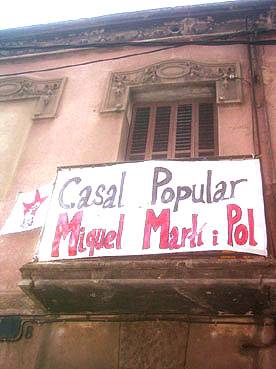 Casal Popular
Miquel Martí i Pol